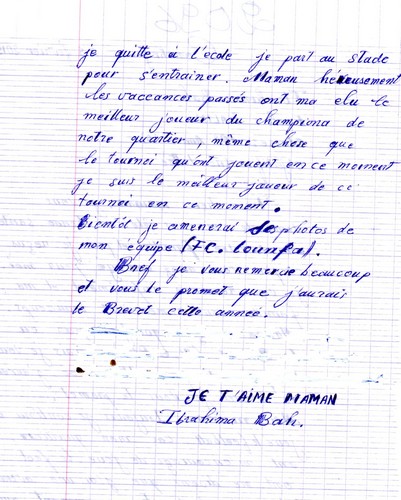 je quitte à l'école je part au stade
pour s'entrainer. Maman héreusement
les vaccances passés ont ma elu le
meilleur joueur du championa de
notre quartier, même chose que
le tournoi qu'ont jouent en ce moment
je suis le meilleur joueur de ce
tournoi en ce moment.
Bientôt je amenerai les photos de
mon équipe (FC. Lounfa).
Bref je vous remercie beaucoup
et vous le promet que j'aurais
le Brevet cette année.
JE T'AIME MAMAN
Ibrahima Bah.